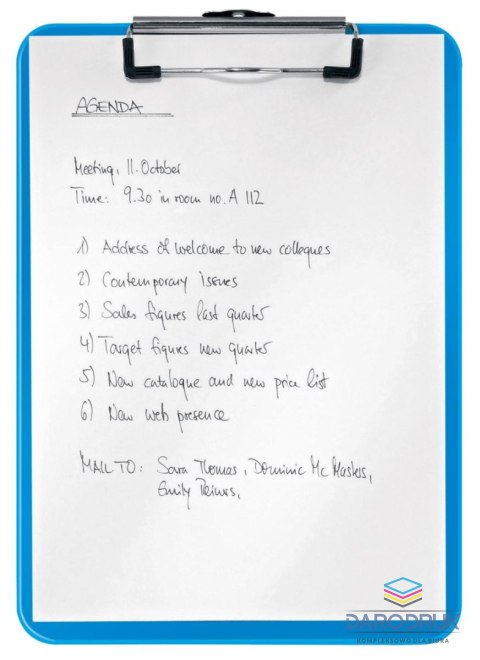 AGENDA
Meeting, 11. October
Time: 9.30 in room no. A 112
1) Address of welcome to new colleques
2) Contemporary issues
3) Sales figures last quarter
4) Target figures new quarter
5) New catalogue and new price list
6) New web presence
MAIL TO: Sara Thomas, Dominic Mc Masters,
Emily
KOMPLEKSOWO DLA BIURA